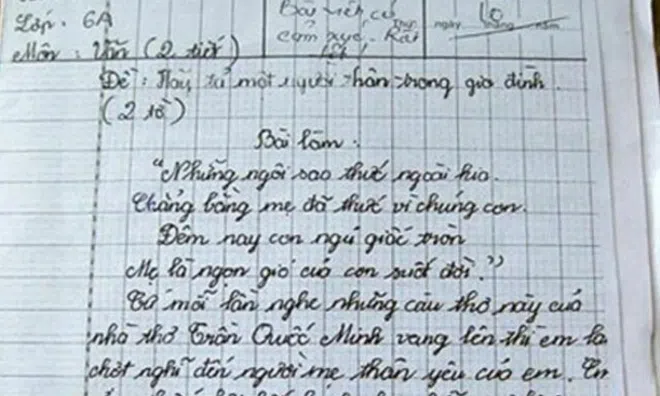 Lớp : 6A
Môn : Văn (2 tiết)
Bài viết có
cảm xúc. Rất
tốt!
ngày tháng năm
10
Đề : Hãy tả một người thân trong gia đình.
(2 tờ)
Bài làm :
"Những ngôi sao thức ngoài kia
Chẳng bằng mẹ đã thức vì chúng con.
Đêm nay con ngủ giấc tròn
Mẹ là ngọn gió của con suốt đời."
Cứ mỗi lần nghe những câu thơ này của
nhà thơ Trần Quốc Minh vang lên thì em lại
chợt nghĩ đến người mẹ thân yêu của em.